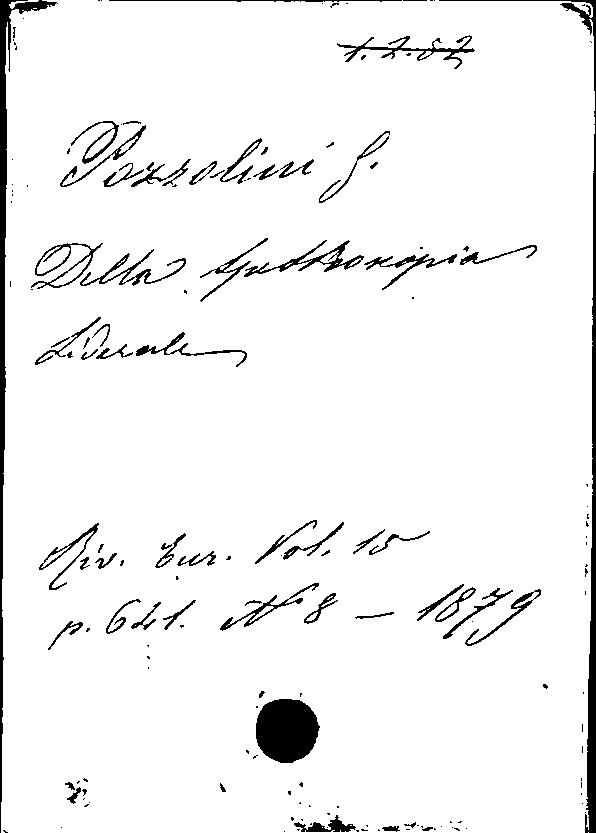 1.2.52
Pozzolini G.
Della Spettroscopia
Siderale
Riv. Eur. Vol. 15
p. 641. N° 8 — 1879